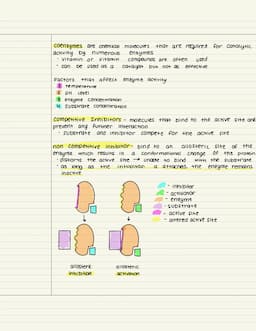 coenzymes are chemical molecules that are required for catalytic
activity by numerous enzymes
- vitamin or vitamin compounds are often used
- can be used as a catalyst but not as effective
Factors that affect enzyme activity
1 temperature
2 pH level
3 enzyme concentration
4 substrate concentration
Competitive Inhibitors - molecules that bind to the active site and
prevent any further interaction
- substrate and inhibitor compete for the active site
non competitive inhibitor - bind to an allosteric site of the
enzyme which results in a conformational change of the protein
- distorts the active site → unable to bind with the substrate
- as long as the inhibitor is attached, the enzyme remains
inactive
- inhibitor
- activator
- enzyme
- substrate
- active site
- altered active site
allosteric
inhibition
allosteric
activation